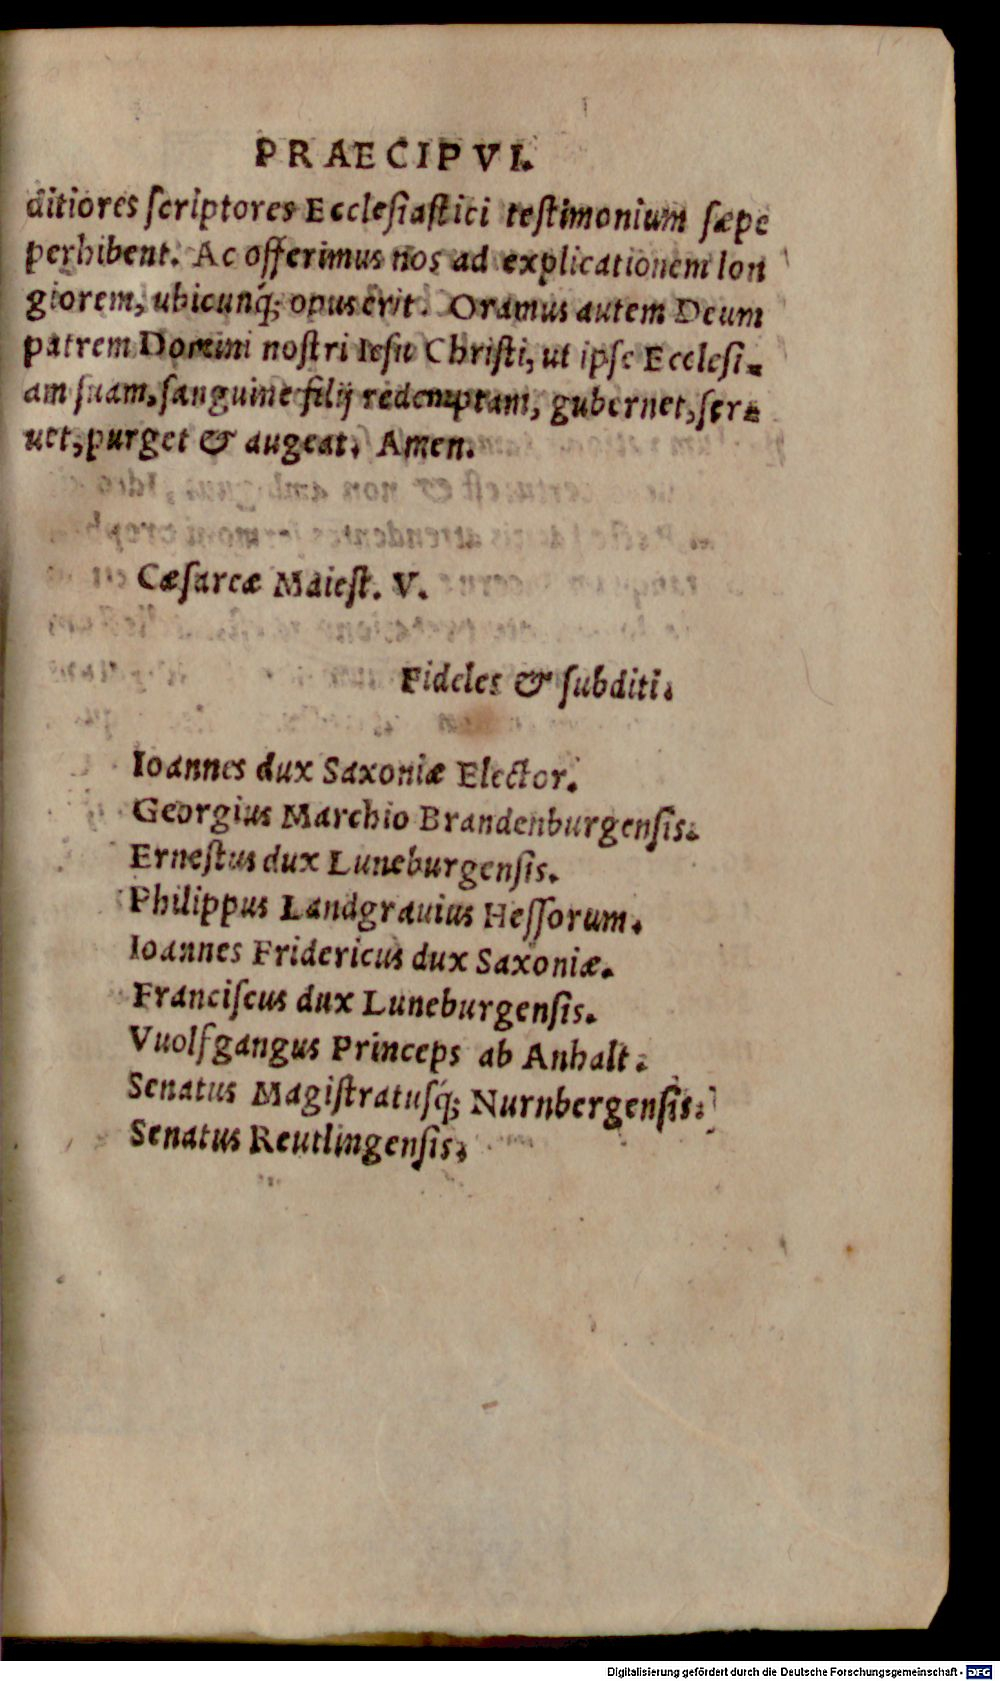 PRAECIPVI.
ditiores ſcriptores Eccleſiaſtici teſtimonium ſæpe
perhibent. Ac offerimus nos ad explicationem lon
giorem, ubicunq́; opus erit. Oramus autem Deum
patrem Domini noſtri Ieſu Chriſti, ut ipſe Eccleſi-
am ſuam, ſanguine filij redemptam, gubernet, ſer-
uet, purget & augeat. Amen.
Cæſareæ Maieſt. V.
Fideles & ſubditi.
Ioannes dux Saxoniæ Elector.
Georgius Marchio Brandenburgenſis.
Erneſtus dux Luneburgenſis.
Philippus Landgrauius Heſſorum.
Ioannes Fridericus dux Saxoniæ.
Franciſcus dux Luneburgenſis.
Vuolfgangus Princeps ab Anhalt.
Senatus Magiſtratuſq́; Nurnbergenſis.
Senatus Reutlingenſis.
Digitalisierung gefördert durch die Deutsche Forschungsgemeinschaft - DFG